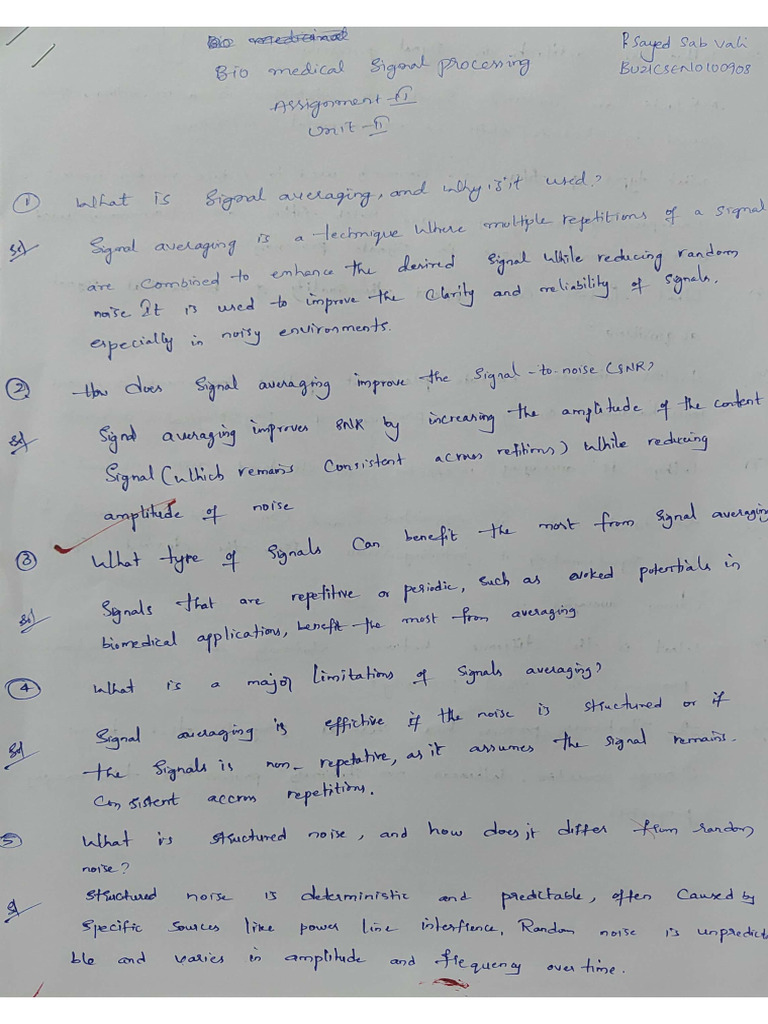 Bio medical
P Sayed Sab Vali
BU21CSEN0100908
Bio medical Signal processing
Assignment-II
Unit-II
① What is Signal averaging, and why is it used?
Sol Signal averaging is a technique where multiple repetitions of a signal
are combined to enhance the desired signal while reducing random
noise It is used to improve the clarity and reliability of signals,
especially in noisy environments.
② How does signal averaging improve the signal-to-noise (SNR?
Sol Signal averaging improves SNR by increasing the amplitude of the content
Signal (which remains consistent across retitions) while reducing
amplitude of noise
③ What type of signals can benefit the most from signal averaging
Sol Signals that are repetitive or periodic, such as evoked potentials in
biomedical applications, benefit the most from averaging
④ What is a major limitations of signals averaging?
Sol Signal averaging is effictive if the noise is structured or if
the signals is non-repetative, as it assumes the signal remains.
Consistent accross repetitions.
5 What is structured noise, and how does it differ from random
noise?
Structured noise is deterministic and predictable, often caused by
specific sources like power line interfience, Random noise is unpredicta
ble and varies in amplitude and frequency over time.